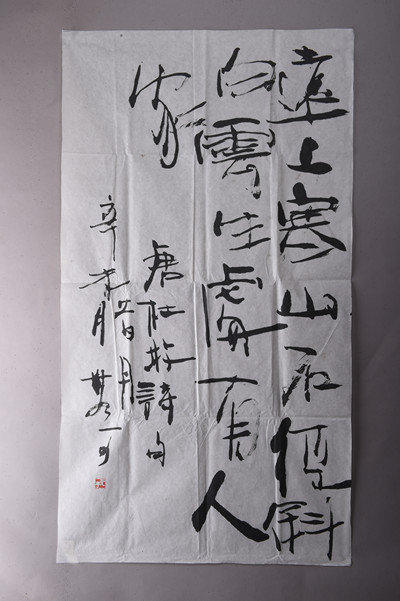 遠上寒山石徑斜
白雲生處有人
家
唐杜牧詩句
辛未